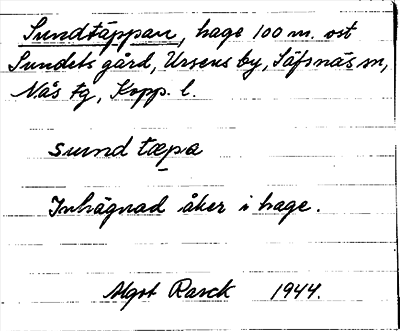 Sundtäppan, hage 100 m. ost
Sundets gård, Ursens by, Säfsnäs sn,
Nås tg, Kopp. l.
sund tæpa
Inhägnad åker i hage.
Algot Rasck 1944.